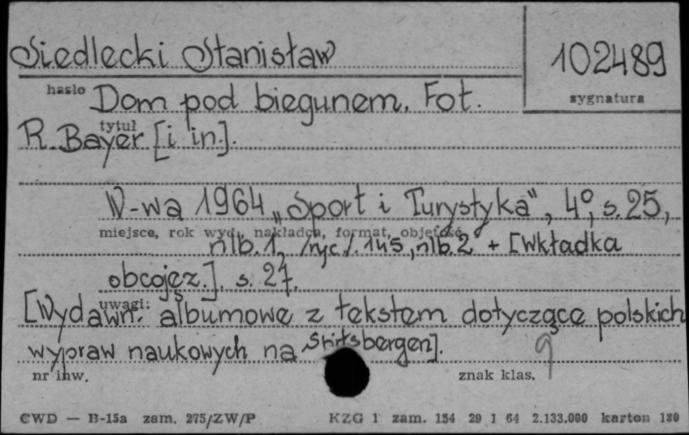 Siedlecki Stanisław
102489
hasło
sygnatura
Dom pod biegunem. Fot.
tytuł
R. Bayer [i in.].
W-wa 1964 „Sport i Turystyka", 4°, s. 25,
miejsce, rok wyd., nakładca, format, objętość
nlb. 1, /ryc/. 145, nlb. 2 + [Wkładka
obcojęz.], s. 27.
uwagi:
[Wydawn. albumowe z tekstem dotyczące polskich
wypraw naukowych na Spitsbergen].
nr inw.
znak klas.
9
CWD — B-15a zam. 275/ZW/P
KZG 1 zam. 154 29 1 64 2.133.000 karton 180